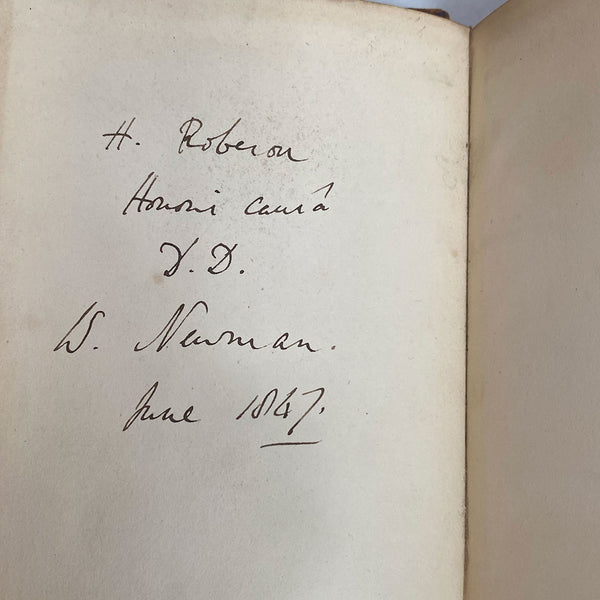 H. Roberson
Honoris causâ
D.D.
W. Newman.
June 1847.